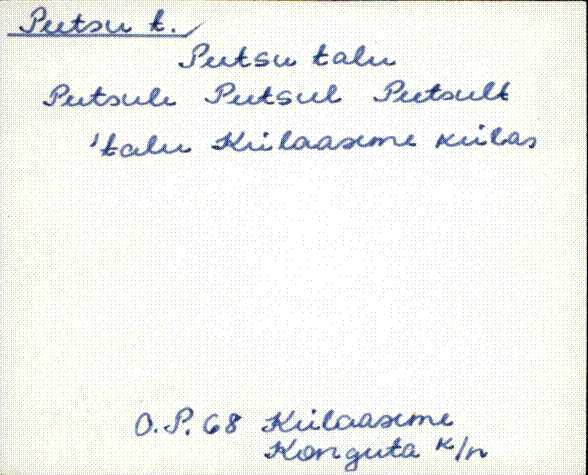 Putsu t.
Putsu talu
Putsule Putsul Putsult
'talu Külaaseme külas
O.P. 68 Külaaseme
Konguta k/n